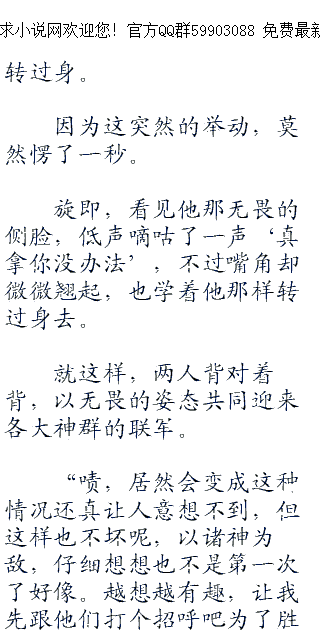 求小说网欢迎您！官方QQ群59903088 免费最新
转过身。
因为这突然的举动，莫
然愣了一秒。
旋即，看见他那无畏的
侧脸，低声嘀咕了一声‘真
拿你没办法’，不过嘴角却
微微翘起，也学着他那样转
过身去。
就这样，两人背对着
背，以无畏的姿态共同迎来
各大神群的联军。
“啧，居然会变成这种
情况还真让人意想不到，但
这样也不坏呢，以诸神为
敌，仔细想想也不是第一次
了好像。越想越有趣，让我
先跟他们打个招呼吧为了胜